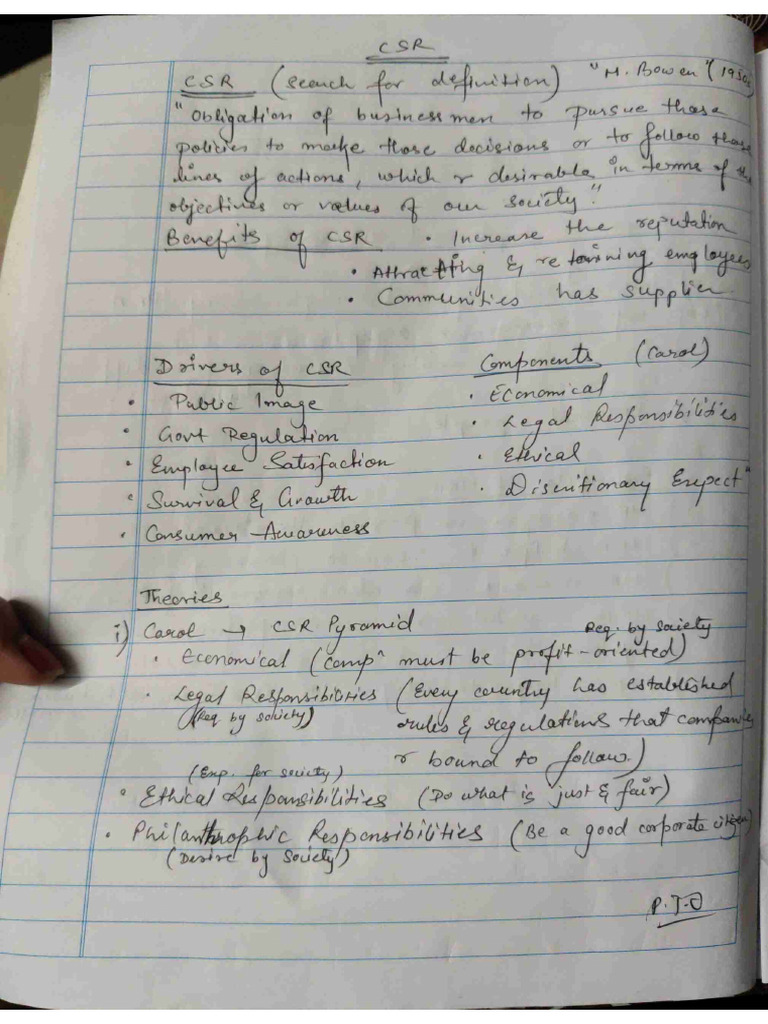 CSR
CSR (search for definition) "H. Bowen" (1950s
"Obligation of businessmen to pursue those
policies to make those decisions or to follow those
lines of actions, which r desirable in terms of the
objectives or values of our society."
Benefits of CSR • Increase the reputation
• Attracting & retaining employees
• Communities has supplier
Drivers of CSR
• Public Image
• Govt Regulation
• Employee Satisfaction
• Survival & Growth
• Consumer Awareness
Components (Carol)
• Economical
• Legal Responsibilities
• Ethical
• Discritionary Expect"
Theories
i) Carol → CSR Pyramid
Req. by society
• Economical (comp^n must be profit-oriented)
• Legal Responsibilities (Every country has established
(Req by society) rules & regulations that companies
r bound to follow.)
(Exp. for society)
• Ethical Responsibilities (Do what is just & fair)
• Philanthrophic Responsibilities (Be a good corporate citizen)
(Desire by Society)
P.T.O